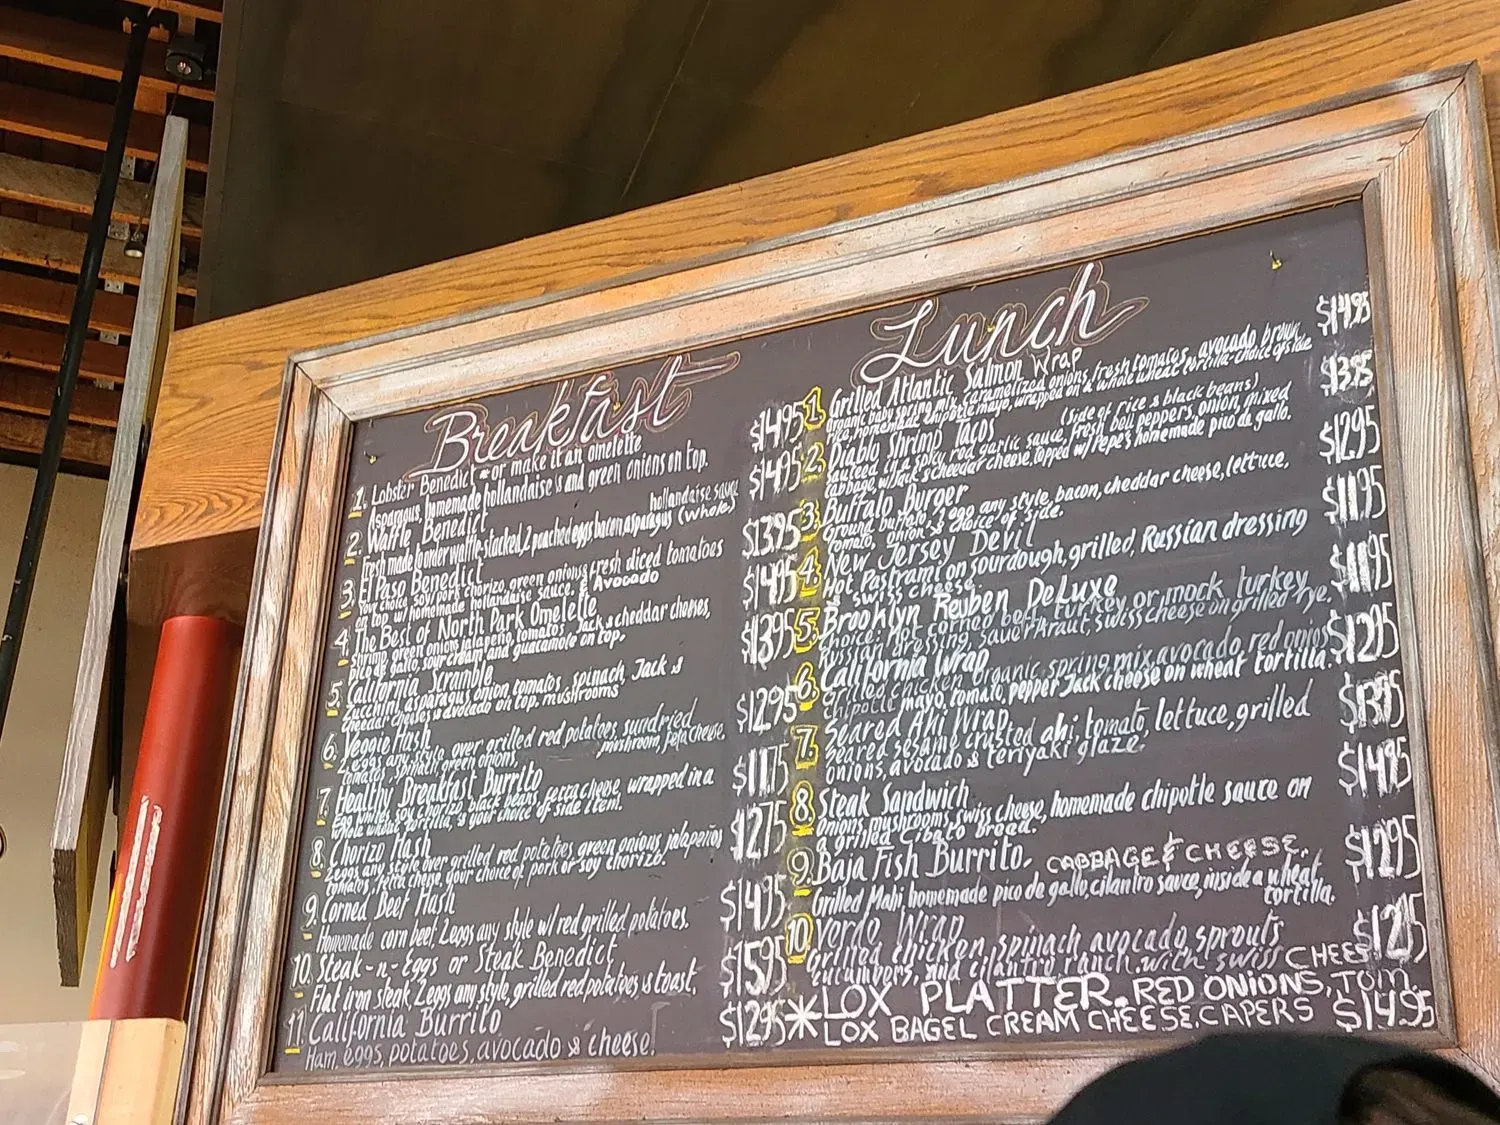 Breakfast
1. Lobster Benedict * or make it an omelette $14.95
Asparagus, homemade hollandaise & and green onions on top.
2. Waffle Benedict hollandaise sauce $14.95
Fresh made founder waffle stacked, 2 poached eggs bacon asparagus (whole)
3. El Paso Benedict $13.95
your choice soy or pork chorizo, green onions & fresh diced tomatoes
on top w/ homemade hollandaise sauce. & Avocado
4. The Best of North Park Omelette $14.95
shrimp green onions jalapeno, tomatos, Jack & cheddar cheeses,
pico de gallo, sour cream and guacamole on top.
5. California Scramble $13.95
Zucchini asparagus onion tomatos spinach, Jack &
cheddar cheeses & avocado on top. mushrooms
6. Veggie Hash $12.95
2 eggs any style over grilled red potatoes sundried
tomatos, spinach green onions, mushroom, feta cheese.
7. Healthy Breakfast Burrito $11.75
Egg whites, soy chorizo, black beans, fetta cheese wrapped in a
whole wheat torilla, & your choice of side item.
8. Chorizo Hash $12.75
2 eggs any style over grilled red potatoes green onions, jalapeños
tomatos, fetta chese your choice of pork or soy chorizo.
9. Corned Beef Hash $14.95
Homemade corn beef, 2 eggs any style w/ red grilled potatoes.
10. Steak-n-Eggs or Steak Benedict $15.95
Flat iron steak, 2 eggs any style, grilled red potatoes & toast.
11. California Burrito $12.95
Ham, eggs, potatoes, avocado & cheese!
Lunch
1. Grilled Atlantic Salmon Wrap $14.95
organic baby spring mix, caramelized onions, fresh tomatos, avocado brown
rice, homemade chipotle mayo, wrapped on a whole wheat torcilla-choice of side
2. Diablo Shrimp Tacos (Side of rice & black beans) $13.95
sauteed in a spicy red garlic sauce, fresh bell peppers, onion, mixed
cabbage, w/ Jack & cheddar cheese, topped w/ Pepe's homemade pico da gallo.
3. Buffalo Burger $12.95
Ground buffalo, 1 egg any style, bacon, cheddar cheese, lettuce,
tomato, onion & choice of side.
4. New Jersey Devil $11.95
Hot Pastrami on sourdough, grilled, Russian dressing
& swiss cheese.
5. Brooklyn Reuben DeLuxe $11.95
choice: Hot corned beef, turkey or mock turkey
russian dressing, sauerkraut, swiss cheese on grilled rye.
6. California Wrap $12.95
Grilled chicken organic spring mix, avocado, red onions
chipotle mayo, tomato, pepper Jack cheese on wheat tortilla.
7. Seared Ahi Wrap $13.95
seared sesame crusted ahi, tomato, lettuce, grilled
onions, avocado & teriyaki glaze.
8. Steak Sandwich $14.95
onions, mushrooms, swiss cheese, homemade chipotle sauce on
a grilled cibato bread.
9. Baja Fish Burrito. CABBAGE & CHEESE. $12.95
Grilled Mahi homemade pico de gallo, cilantro sauce, inside a wheat
tortilla.
10. Verde Wrap $12.95
Grilled chicken, spinach, avocado, sprouts
cucumbers, and cilantro ranch, with swiss CHEESE
*LOX PLATTER. RED ONIONS, TOM.
LOX BAGEL CREAM CHEESE, CAPERS $14.95